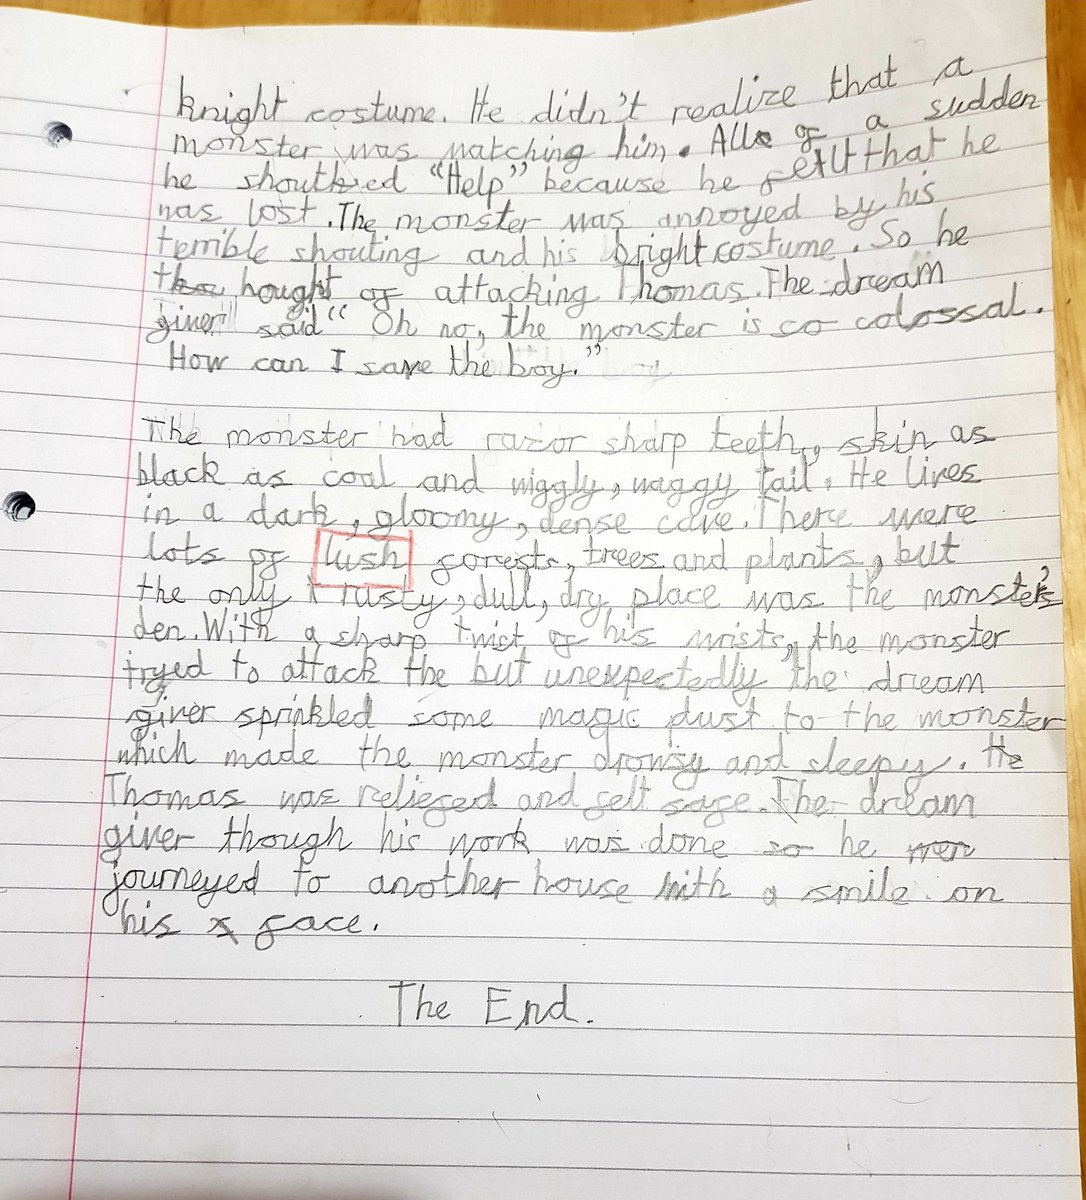 knight costume. He didn't realize that a
monster was watching him. All of a sudden
he shouted "Help" because he felt that he
was lost. The monster was annoyed by his
terrible shouting and his bright costume. So he
thought of attacking Thomas. The dream
giver said" Oh no, the monster is so colossal.
How can I save the boy."
The monster had razor sharp teeth, skin as
black as coal and wiggly, waggy tail. He lives
in a dark, gloomy, dense cave. There were
lots of lush forests, trees and plants, but
the only rusty, dull, dry place was the monster's
den. With a sharp twist of his wrists, the monster
tryed to attack the but unexpectedly the dream
giver sprinkled some magic dust to the monster
which made the monster drowsy and sleepy. He
Thomas was reliefed and felt safe. The dream
giver though his work was done so he
journeyed to another house with a smile on
his face.
The End.